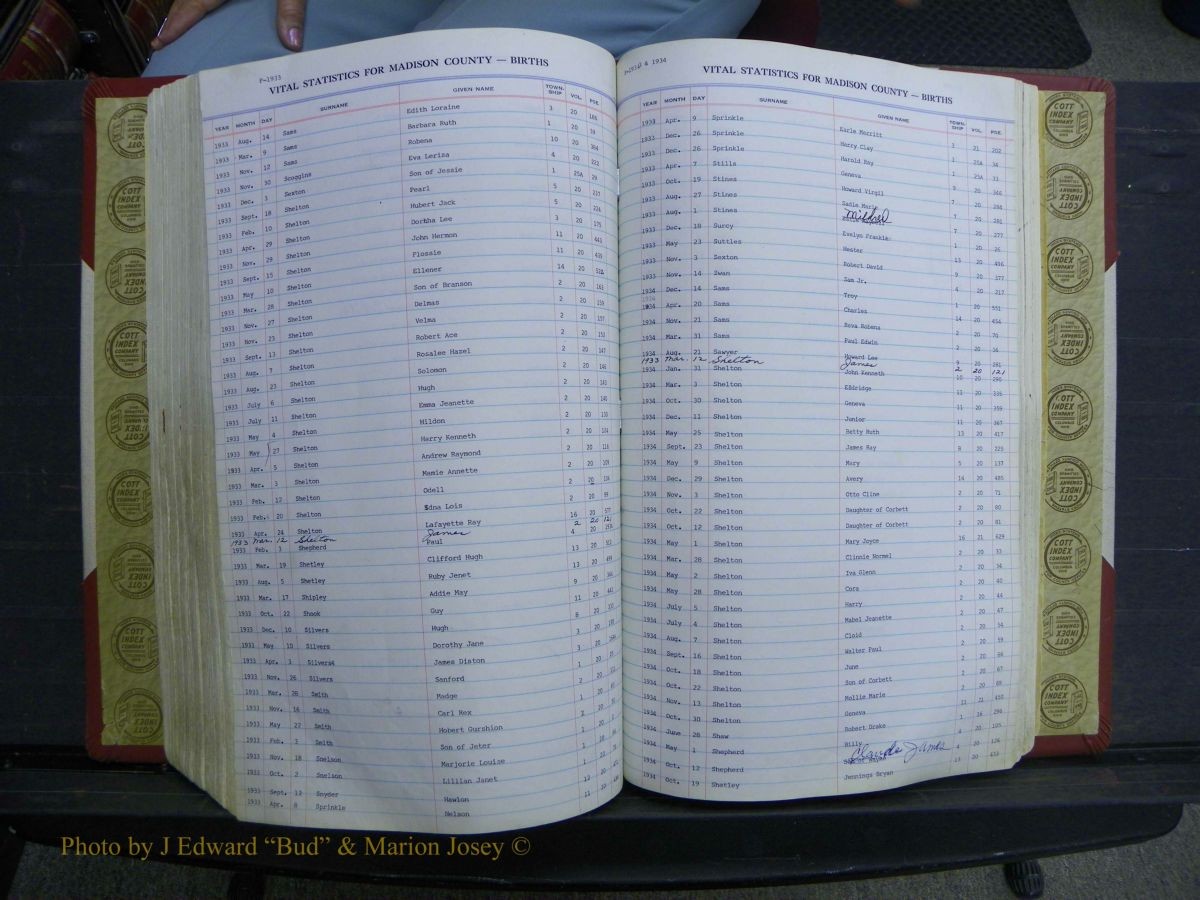 P-1933
VITAL STATISTICS FOR MADISON COUNTY — BIRTHS
YEAR MONTH DAY SURNAME GIVEN NAME TOWN-SHIP VOL. PGE.
1933 Aug. 14 Sams Edith Loraine 3 20 186
1933 Mar. 9 Sams Barbara Ruth 1 20
1933 Nov. 12 Sams Robena 10 20 384
1933 Nov. 30 Scoggins Eva Leriza 4 20 222
1933 Dec. 3 Sexton Son of Jessie 1 25A 29
1933 Sept. 18 Shelton Pearl 5 20 237
1933 Feb. 10 Shelton Hubert Jack 5 20 224
1933 Apr. 29 Shelton Dortha Lee 3 20 175
1933 Nov. 29 Shelton John Hermon 11 20 443
1933 Sept. 15 Shelton Flossie 11 20 439
1933 May 10 Shelton Ellener 14 20
1933 Mar. 28 Shelton Son of Branson 2 20 163
1933 Nov. 27 Shelton Delmas 2 20 159
1933 Nov. 23 Shelton Velma 2 20 157
1933 Sept. 13 Shelton Robert Ace 2 20 152
1933 Aug. 7 Shelton Rosalee Hazel 2 20 147
1933 Aug. 23 Shelton Solomon 2 20 146
1933 July 6 Shelton Hugh 2 20 143
1933 July 11 Shelton Emma Jeanette 2 20 140
1933 May 4 Shelton Hildon 2 20
1933 May 27 Shelton Harry Kenneth 2 20
1933 Apr. 5 Shelton Andrew Raymond 2 20 116
1933 Mar. 3 Shelton Mamie Annette 2 20 109
1933 Feb. 12 Shelton Odell 2 20
1933 Feb. 20 Shelton Edna Lois 2 20 99
1933 Apr. 24 Shelton Lafayette Ray 16 20 577
1933 Mar. 12 Shelton James 2 20 121
1933 Feb. 3 Shepherd Paul 4 20
1933 Mar. 19 Shetley Clifford Hugh 13 20
1933 Aug. 5 Shetley Ruby Jenet 13 20 499
1933 Mar. 17 Shipley Addie May 9 20
1933 Oct. 22 Shook Guy 11 20 441
1933 Dec. 10 Silvers Hugh 8 20
1933 May 10 Silvers Dorothy Jane 3 20
1933 Apr. 3 Silvers James Diston 3 20
1933 Nov. 26 Silvers Sanford 1 20
1933 Mar. 28 Smith Madge 2 20
1933 Nov. 16 Smith Carl Rex 1 20
1933 May 22 Smith Hobert Gurshion 20
1933 Feb. 3 Smith Son of Jeter 1 20
1933 Nov. 18 Snelson Marjorie Louise 1
1933 Oct. 2 Snelson Lillian Janet 1
1933 Sept. 12 Snyder Hawlon
1933 Apr. 8 Sprinkle Nelson 11
& 1934
VITAL STATISTICS FOR MADISON COUNTY — BIRTHS
YEAR MONTH DAY SURNAME GIVEN NAME TOWN-SHIP VOL. PGE.
1933 Apr. 9 Sprinkle Earle Merritt 3 21 202
1933 Dec. 26 Sprinkle Harry Clay 1 25A 34
1933 Dec. 26 Sprinkle Harold Ray 1 25A 33
1933 Apr. 7 Stills Geneva 9 20 346
1933 Oct. 19 Stines Howard Virgil 7 20 284
1933 Aug. 27 Stines Sadie Marie 7 20 281
1933 Aug. 1 Stines Mildred 7 20 277
1933 Dec. 18 Surcy Evelyn Frankie 1 20 26
1933 May 23 Suttles Hester 13 20 496
1933 Nov. 3 Sexton Robert David 9 20 377
1933 Nov. 14 Swan Sam Jr. 4 20 217
1934 Dec. 14 Sams Troy 1 20 551
1934 Apr. 20 Sams Charles 14 20 454
1934 Nov. 21 Sams Reva Robena 2 20 70
1934 Mar. 31 Sams Paul Edwin 2 20 36
1934 Aug. 21 Sawyer Howard Lee 9 20 281
1933 Mar. 12 Shelton James 2 20 121
1934 Jan. 31 Shelton John Kenneth 10 20 290
1934 Mar. 3 Shelton Elbridge 11 20 335
1934 Oct. 30 Shelton Geneva 11 20 359
1934 Dec. 11 Shelton Junior 11 20 367
1934 May 25 Shelton Betty Ruth 13 20 417
1934 Sept. 23 Shelton James Ray 8 20 225
1934 May 9 Shelton Mary 5 20 137
1934 Dec. 29 Shelton Avery 14 20 485
1934 Nov. 3 Shelton Otto Cline 2 20 71
1934 Oct. 22 Shelton Daughter of Corbett 2 20 80
1934 Oct. 12 Shelton Daughter of Corbett 2 20 81
1934 May 1 Shelton Mary Joyce 16 21 629
1934 Mar. 28 Shelton Clinnie Normel 2 20 33
1934 May 2 Shelton Iva Glenn 2 20 34
1934 May 28 Shelton Cora 2 20 40
1934 July 5 Shelton Harry 2 20 44
1934 July 4 Shelton Mabel Jeanette 2 20 47
1934 Aug. 7 Shelton Cloid 2 20 54
1934 Sept. 16 Shelton Walter Paul 2 20 59
1934 Oct. 18 Shelton June 2 20
1934 Oct. 22 Shelton Son of Corbett 2 20 67
1934 Nov. 13 Shelton Mollie Marie 2 20 69
1934 Oct. 30 Shelton Geneva 11 21
1934 June 28 Shaw Robert Drake 1 16 294
1934 May 1 Shepherd Billy 4 20 105
1934 Oct. 12 Shepherd Claude James 4 20 126
1934 Oct. 19 Shetley Jennings Bryan 13 20 433
COTT INDEX COMPANY COLUMBUS OHIO
Photo by J Edward “Bud” & Marion Josey ©